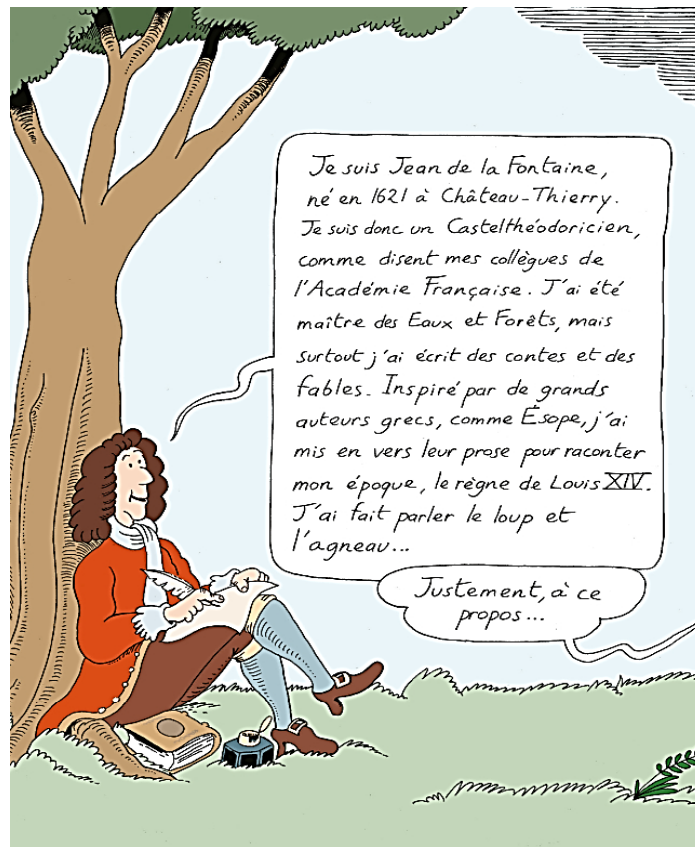 Je suis Jean de la Fontaine,
né en 1621 à Château-Thierry.
Je suis donc un Castelthéodoricien,
comme disent mes collègues de
l'Académie Française. J'ai été
maître des Eaux et Forêts, mais
surtout j'ai écrit des contes et des
fables. Inspiré par de grands
auteurs grecs, comme Ésope, j'ai
mis en vers leur prose pour raconter
mon époque, le règne de Louis XIV.
J'ai fait parler le loup et
l'agneau...
Justement, à ce
propos...